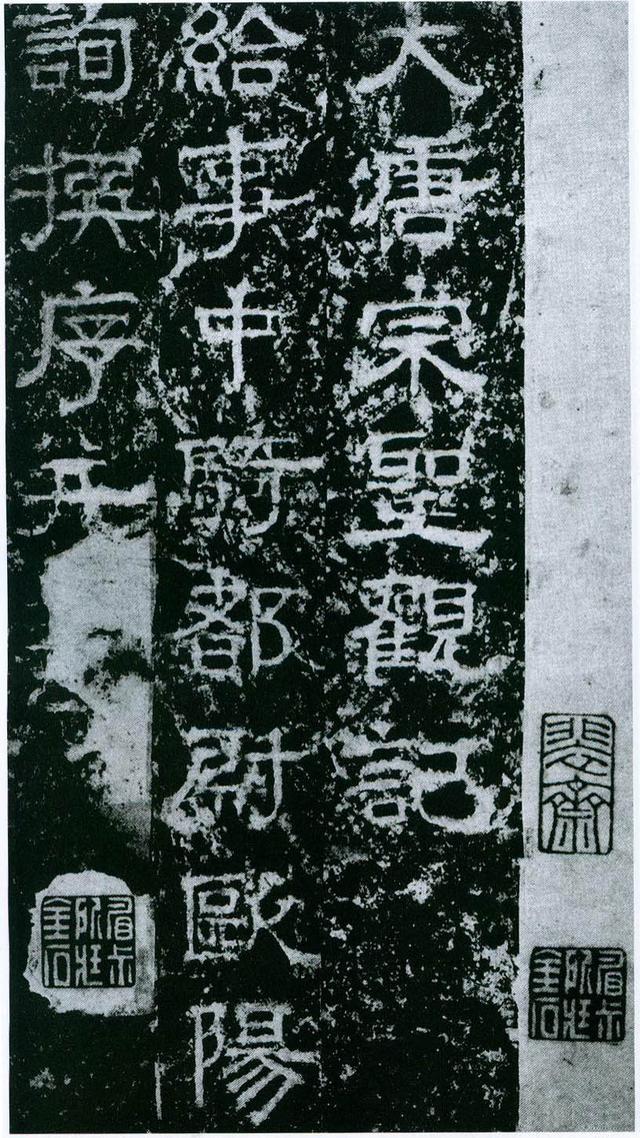 大唐宗聖觀記
給事中騎都尉歐陽
詢撰序并